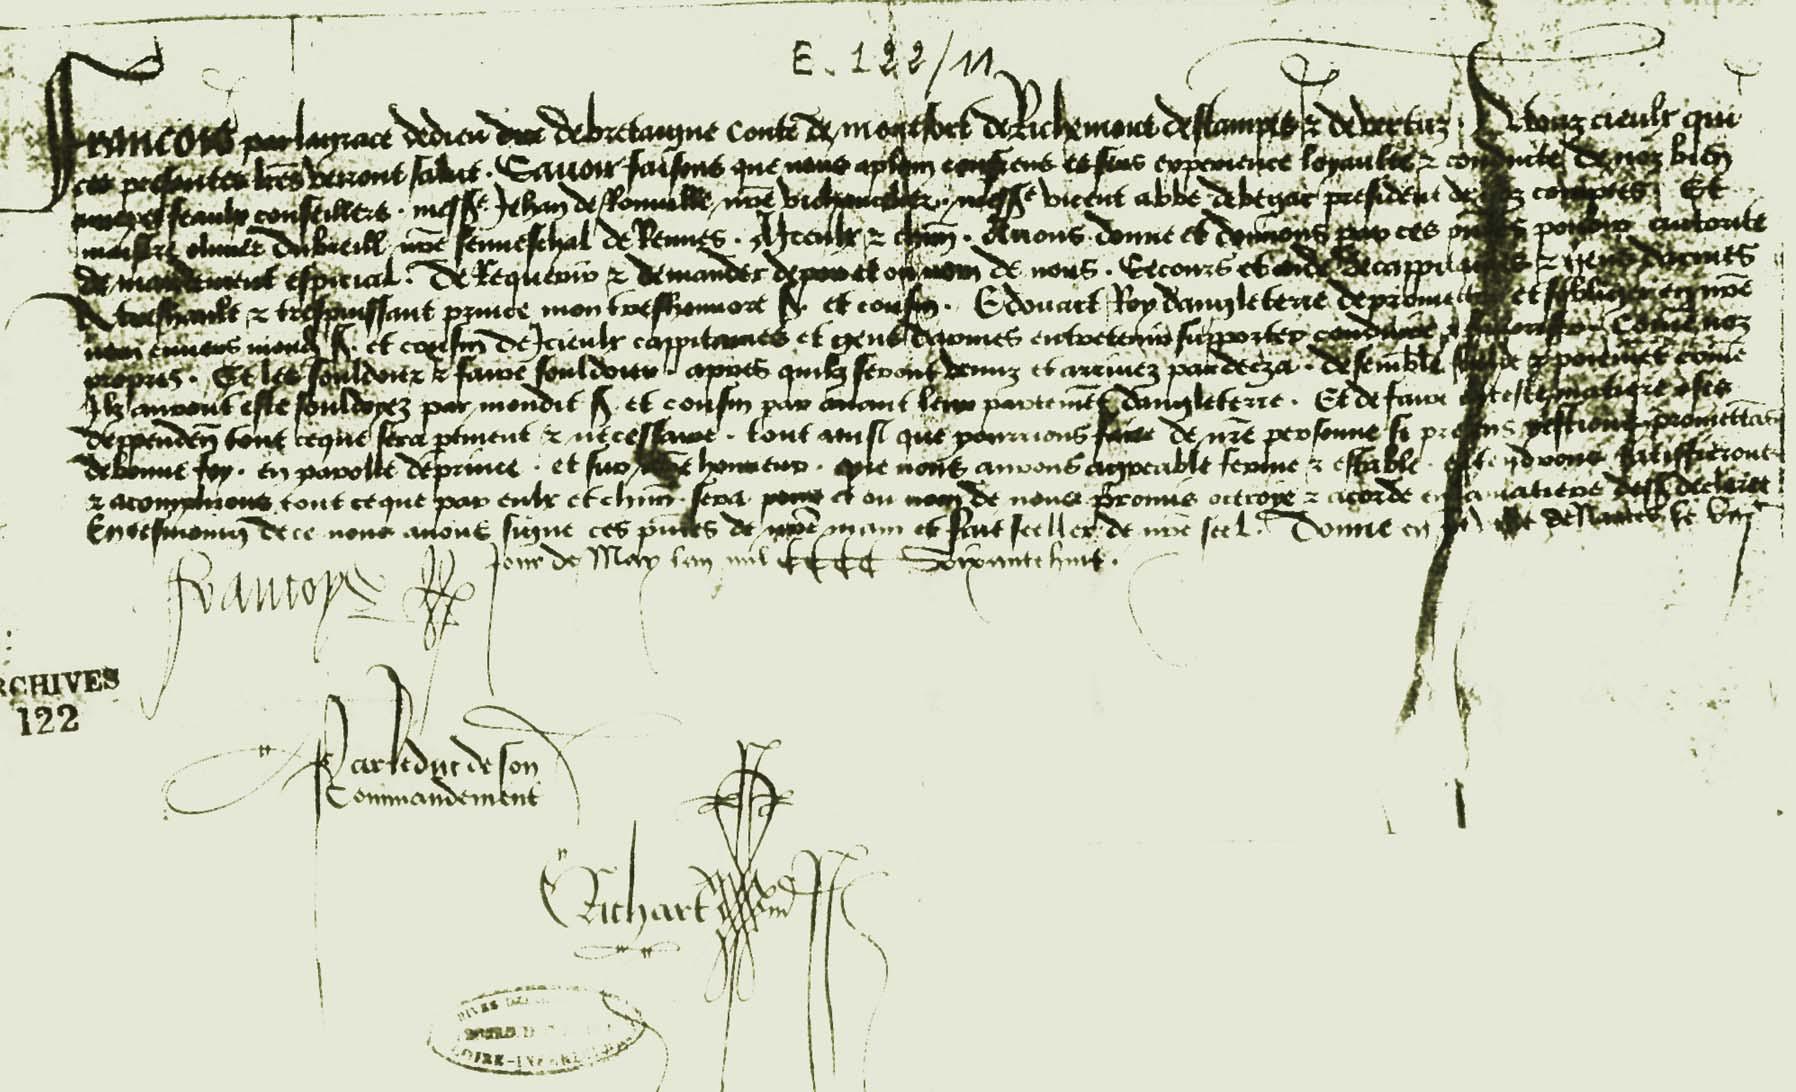 E. 122/11
Francois par la grace de dieu duc de bretaigne conte de montfort de Richemont destampes & de vertuz. A touz ceulx qui
ces presentes lres verront salut. Savoir faisons que nous aplain des sens experience loyaulte & conduite de noz bien
amez feaulx conseillers. mess^e Jehan de Rouville nre vichancelier. mess^e vicent abbe de begar president de noz comptes. Et
maistre olivier dubreill nre senneschal de Rennes. A iceulx & chun. Avons donne et donnons par ces pntes povoir autorite
& mandement especial. De Requerir & demander de par et ou nom de nous. Secours et aide de cappitaines & gens darmes
A treshault & trespuissant prince mon treshonnore s^r. et cousin. Edouart Roy dangleterre de promectre et obliger en nre
nom envers mond s^r. et cousin de Iceulx cappitaines et gens darmes entretenir supporter conduire & favoriser. Come noz
propres. Et les souldoier & faire souldoier. apres quilz seront venuz et arrivez par decza. de semble soulde & poiement come
Ilz auront este souldoyez par mondit s^r. et cousin par avant leur partement dangleterre. Et de faire en ceste matiere & ses
deppenden tout ce que sera ptinent & necessaire. tout ainsi que pourrions faire de nre personne si presens y estions. promettans
de bonne foy. en parolle de prince. et sur nre honneur. que nous aurons aggreable ferme & estable. et tendrons Ratiffierons
& acomplirons tout ce que par eulx et chun. sera pour et ou nom de nous promis octroye & acorde en la matiere dess declaree
En tesmoing de ce nous avons signe ces pntes de nre main et fait seeller de nre seel. Donne en de Nantes le VIII^e
Jour de May lan mil CCCC Soixante huit.
Francoys
ARCHIVES
122
Par le duc de son
Commandement
Richart
LOIRE-INFERIEURE